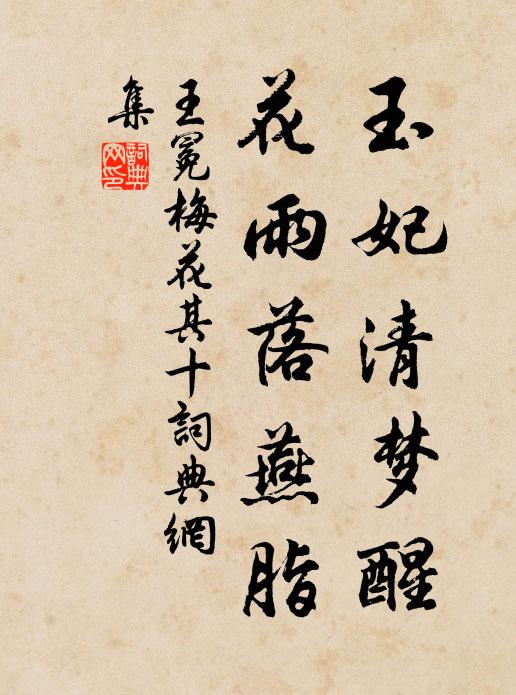 玉妃清梦醒
花雨落燕脂
王冕梅花其十詞典網
集
詞典网印